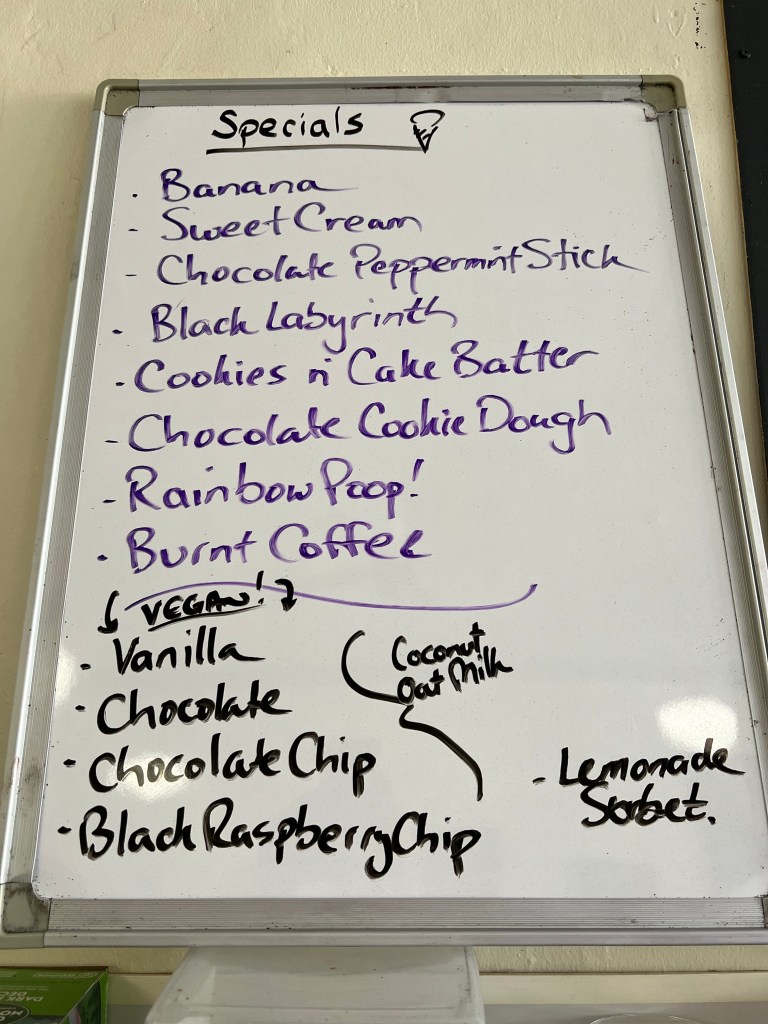 Specials
. Banana
- Sweet Cream
- Chocolate Peppermint Stick
. Black Labyrinth
. Cookies n' Cake Batter
- Chocolate Cookie Dough
- Rainbow Poop!
. Burnt Coffee
VEGAN!
. Vanilla
. Chocolate
. Chocolate Chip
. Black Raspberry Chip
Coconut
Oat Milk
- Lemonade
Sorbet.
DARK